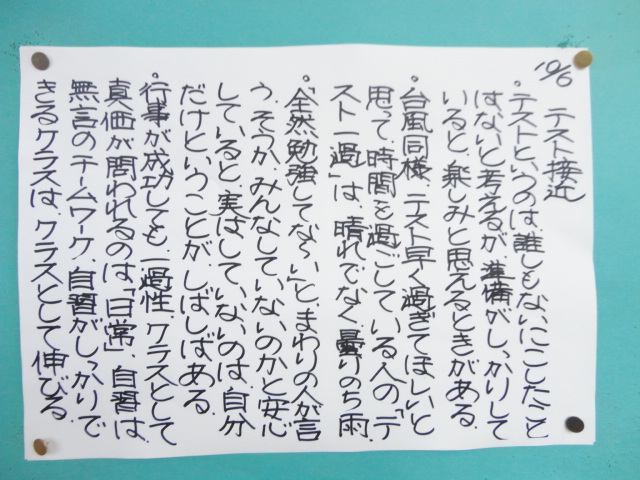 10/6
テスト接近
・テストというのは、誰しもないにこしたこと
はないと考えるが、準備がしっかりして
いると、楽しみと思えるときがある。
・台風同様、テスト早く過ぎてほしいと
思って、時間を過ごしている人の「テ
スト一過」は、晴れでなく、曇りのち雨。
・「全然勉強してな〜い」と、まわりの人が言
う。そうか、みんなしていないのかと安心
していると、実はしていないのは、自分
だけということが、しばしばある。
・行事が成功しても、一過性。クラスとして
真価が問われるのは、「日常」、自習は、
無言のチームワーク、自習がしっかりで
きるクラスは、クラスとして伸びる。